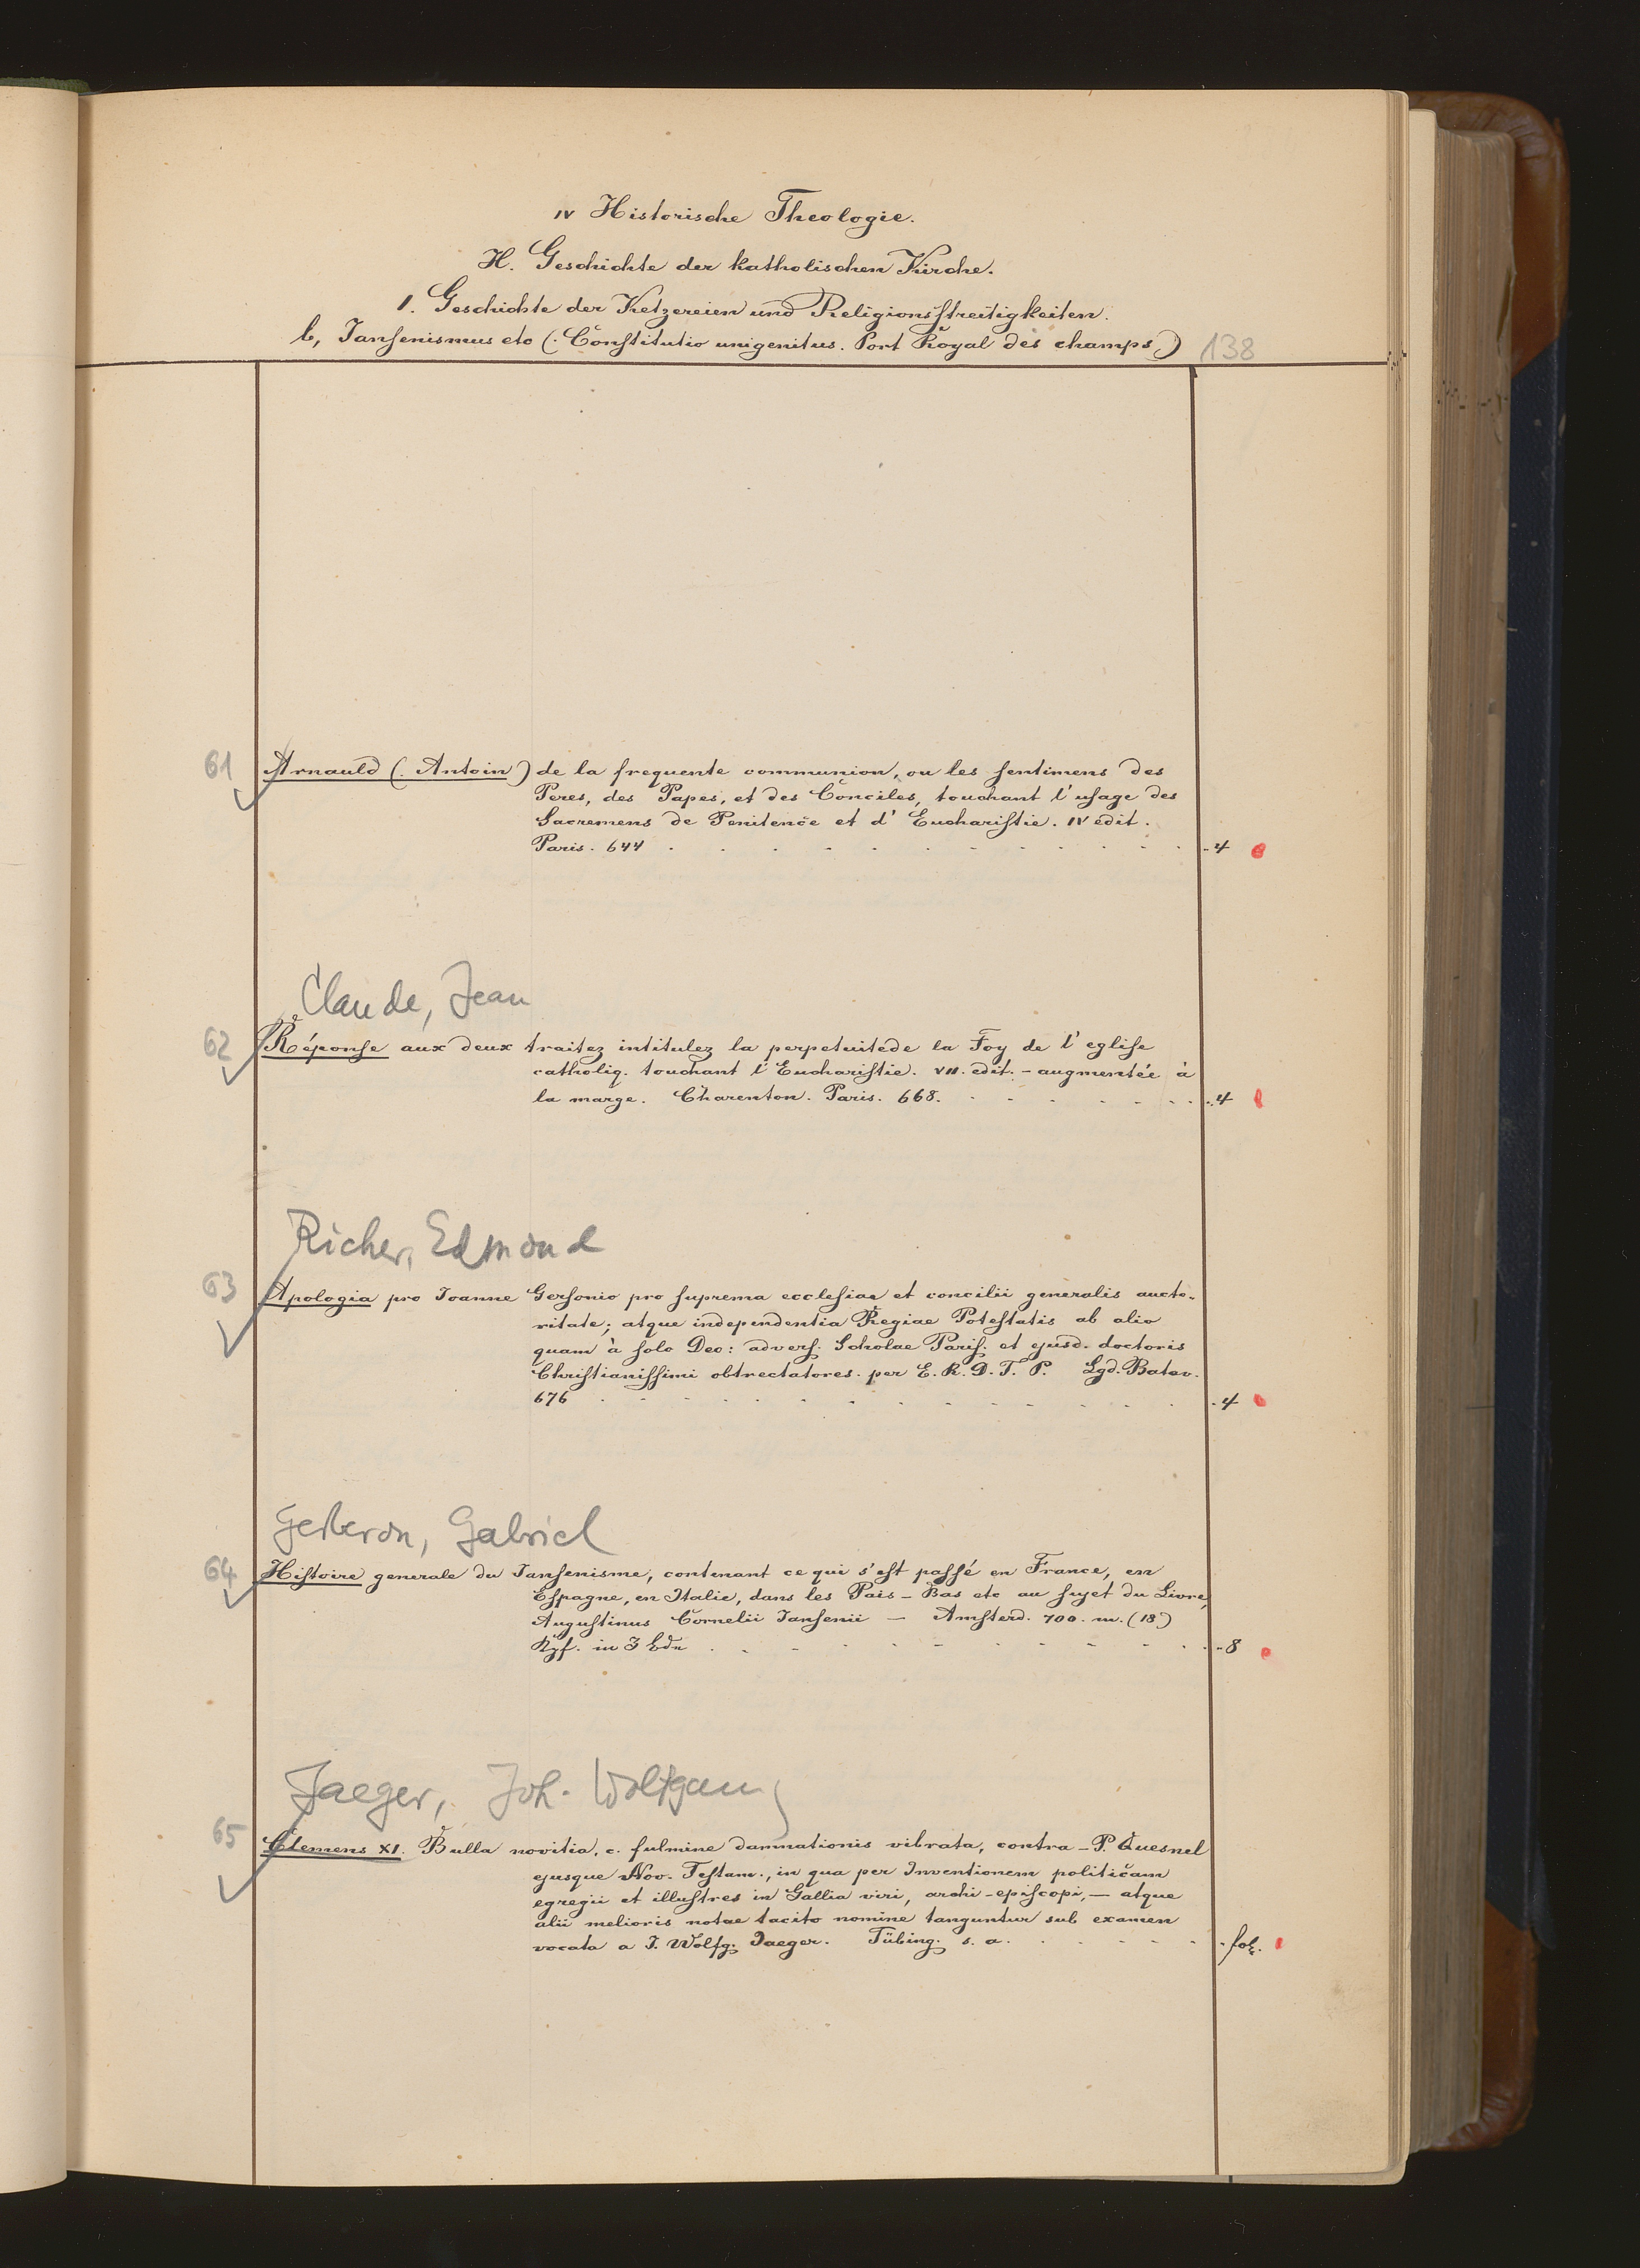 IV Historische Theologie.
H. Geschichte der katholischen Kirche.
1. Geschichte der Ketzereien und Religionsstreitigkeiten.
b, Jansenismus etc (. Constitutio unigenitus. Port Royal des champs.) 138
61 Arnauld (. Antoin) de la frequente communion, ou les sentimens des
Peres, des Papes, et des Conciles, touchant l'usage des
Sacremens de Penitence et d'Eucharistie. IV edit.
Paris. 644 . . . . . . . . . . . 4
Claude, Jean
62 Réponse aux deux traitez intitulez la perpetuitede la Foy de l'eglise
catholiq. touchant l'Eucharistie. VII. edit. - augmentée à
la marge. Charenton. Paris. 668. . . . . . . . 4
Richer, Edmond
63 Apologia pro Joanne Gersonio pro suprema ecclesiae et concilii generalis aucto-
ritate; atque independentia Regiae Potestatis ab alio
quam à solo Deo: advers. Scholae Paris. et ejusd. doctoris
Christianissimi obtrectatores. per E. R. D. T. P. Lgd. Batav.
676 . . . . . . . . . . . . 4
Gerberon, Gabriel
64 Histoire generale du Jansenisme, contenant ce qui s'est passé en France, en
Espagne, en Italie, dans les Pais - Bas etc au sujet du Livre,
Augustinus Cornelii Jansenii — Amsterd. 700. m. (18.)
Kpf. in 3 bdn . . . . . . . . . . 8
Jaeger, Joh. Wolfgang
65 Clemens XI. Bulla novitia, c. fulmine damnationis vibrata, contra - P. Quesnel
ejusque Nov. Testam., in qua per Inventionem politicam
egregii et illustres in Gallia viri, archi-episcopi, — atque
alii melioris notae tacito nomine tanguntur sub examen
vocata a J. Wolfg. Jaeger. Tübing. s. a. . . . . . fol.